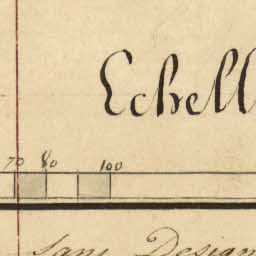 Echell
70 80 100
sans Design